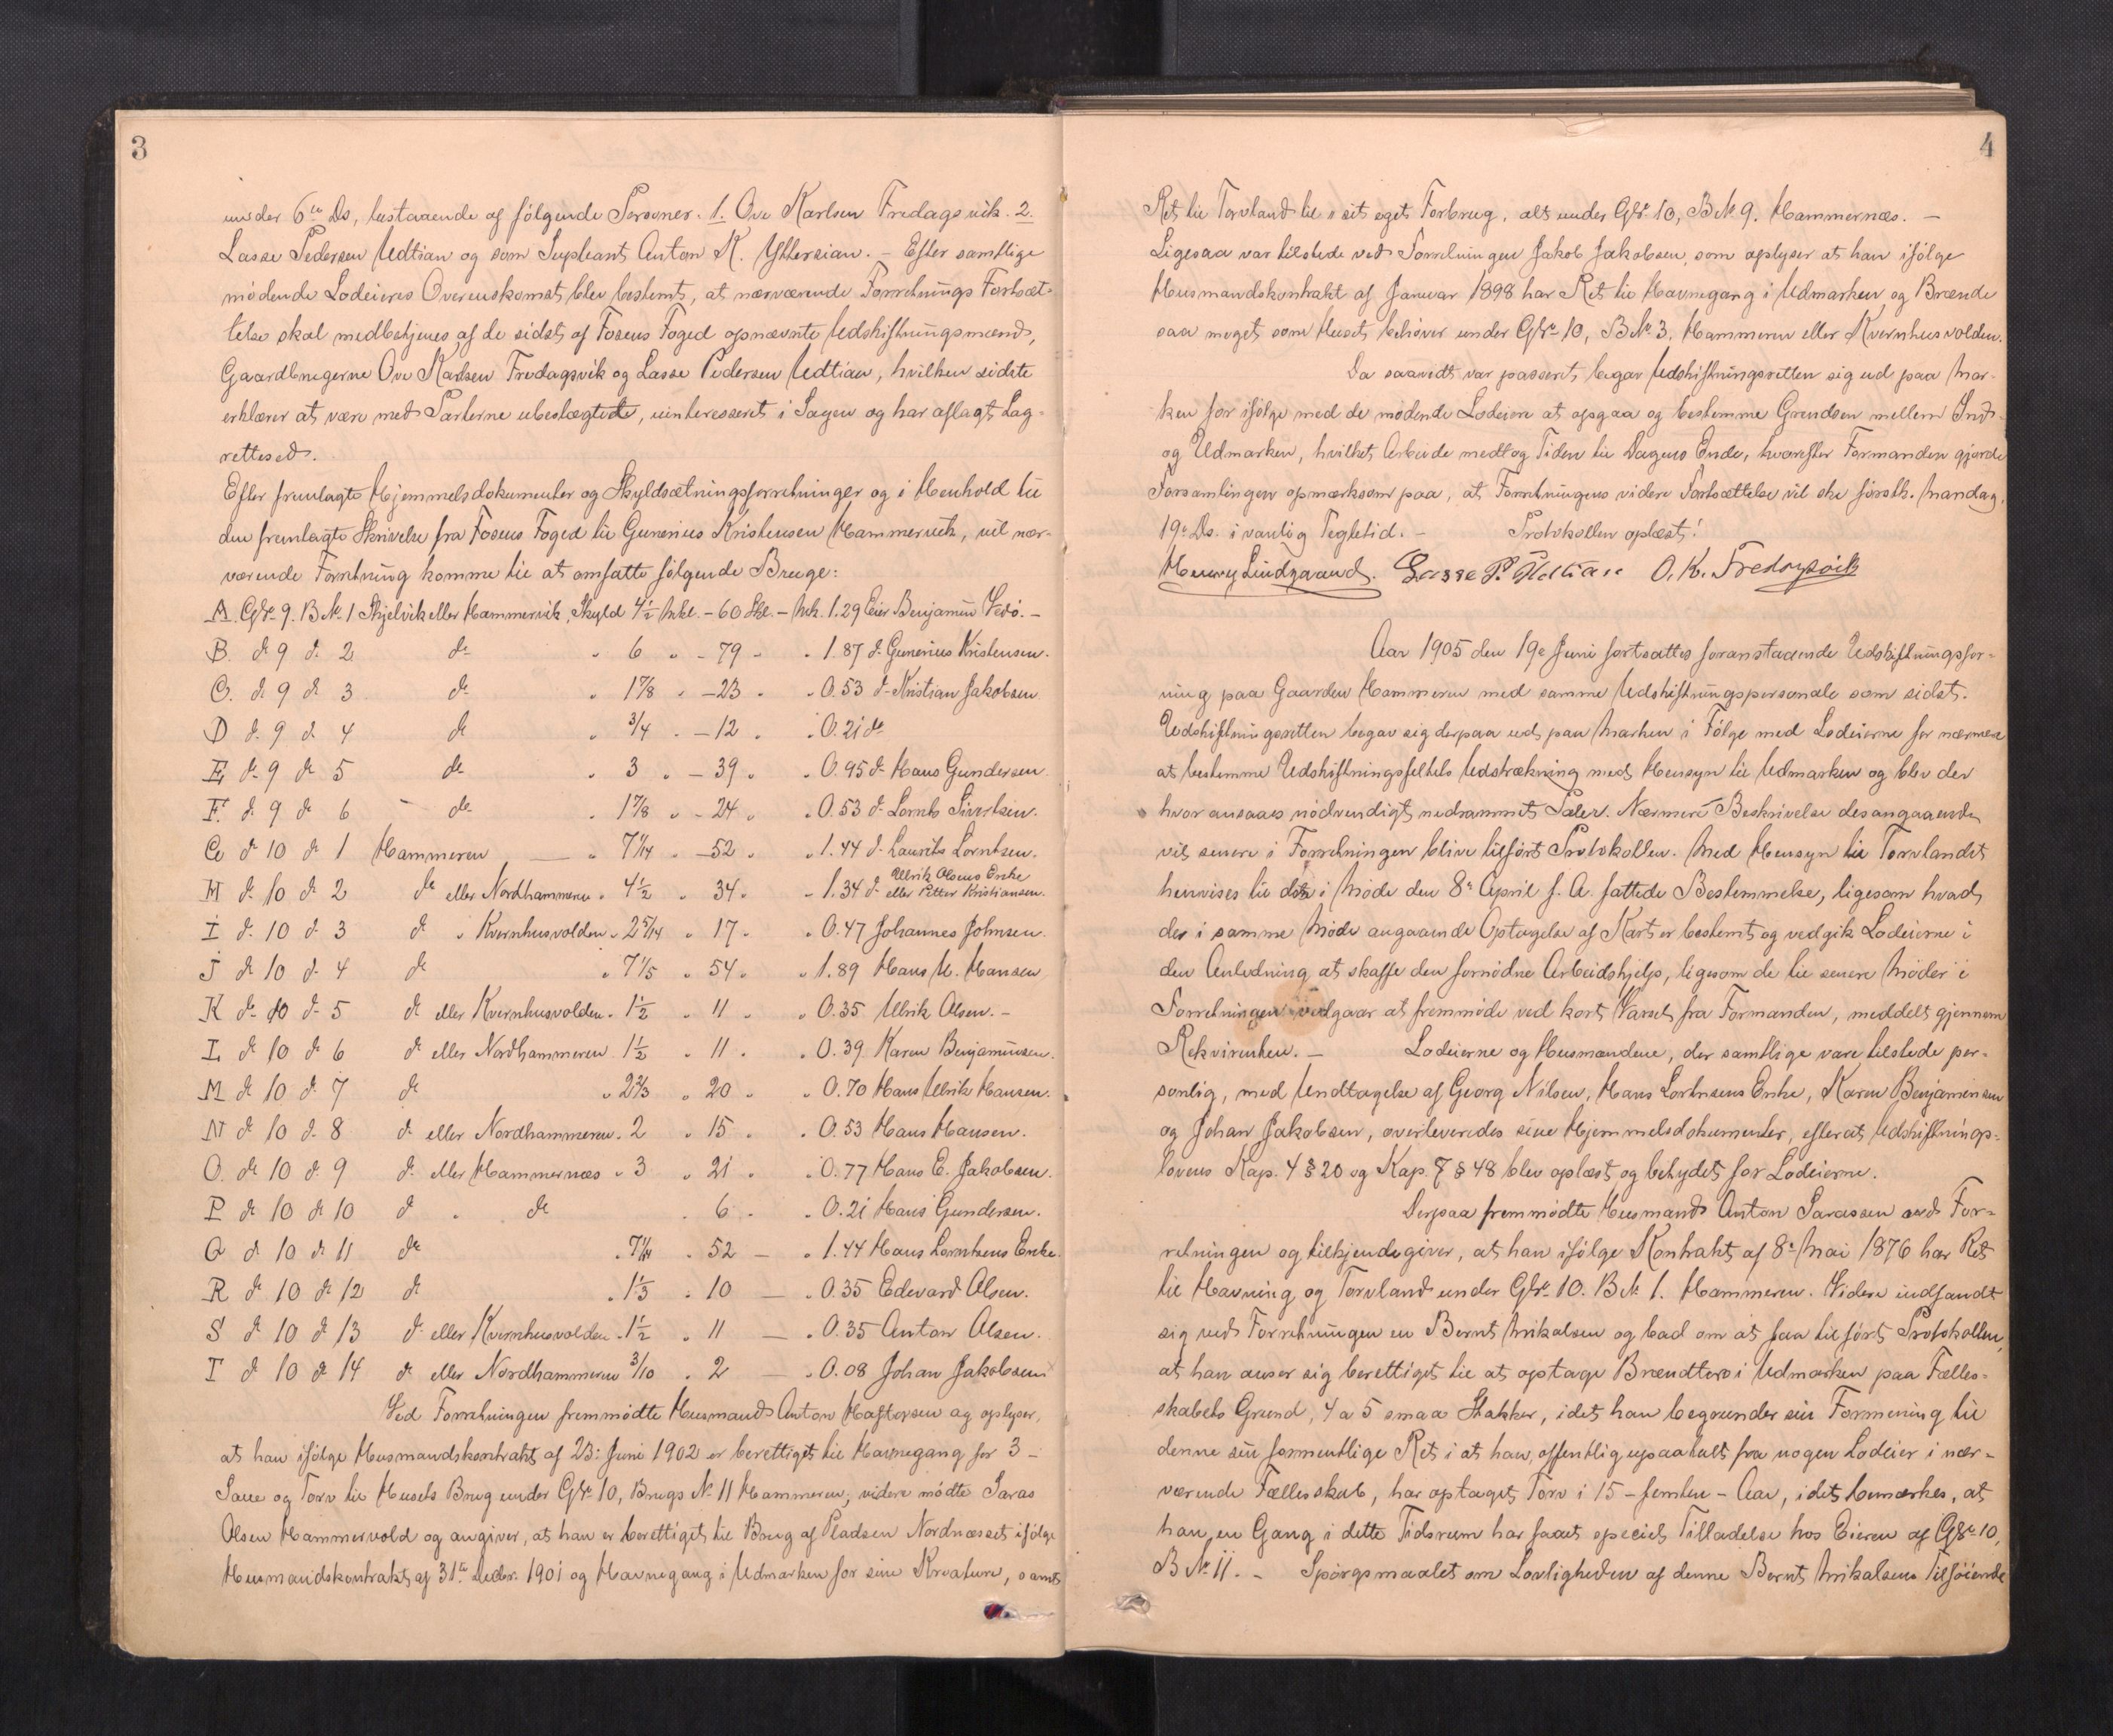 3
under 6te Ds, bestaaende af følgende Personer: 1. Ove Karlsen Fredagsvik. 2.
Lasse Pedersen Udtian og som Supleant Anton K. Yttersian. – Efter samtlige
mødende Lodeieres Overenskomst blev bestemt, at nærværende Forretnings Fortsæt-
telse skal medbetjenes af de sidst af Fosens Foged opnævnte Udskiftningsmænd,
Gaardbrugerne Ove Karlsen Fredagsvik og Lasse Pedersen Udtian, hvilken sidste
erklærer at være med Parterne ubeslægtede, uinteresseret i Sagen og har aflagt Lag-
rettesed.
Efter fremlagte Hjemmelsdokumenter og Skyldsætningsforretninger og i Henhold til
den fremlagte Skrivelse fra Fosens Foged til Gunerius Kristensen Hammervik, vil nær-
værende Forretning komme til at omfatte følgende Bruge:
A. Gr. 9. B.N. 1 Skjelvik eller Hammervik, Skyld 4½ Mkl. – 60 Skl. – Mk. 1.29 Eier Benjamin Vedø. –
B. do 9 do 2 do " 6 " – 79 " " 1.87 do Gunerius Kristensen.
C. do 9 do 3 do " 1⅞ " – 23 " " 0.53 do Kristian Jakobsen
D do 9 do 4 do " ¾ " – 12 " " 0.21 do
E do 9 do 5 do " 3 " – 39 " " 0.95 do Hans Gundersen
F. do 9 do 6 do " 1⅞ " – 24 " " 0.53 do Lornts Sivertsen.
G do 10 do 1 Hammeren — " 7 1/14 " – 52 " " 1.44 do Laurits Lorntsen.
Ulrik Olsens Enke
H do 10 do 2 do eller Nordhammeren " 4½ " 34 " " 1.34 do eller Petter Kristiansen.
I do 10 do 3 do " Kvernhusvolden " 2 5/14 " 17 " " 0.47 Johannes Johnsen.
J do 10 do 4 do " 7⅕ " 54 " " 1.89 Hans U. Hansen
K do 10 do 5 do eller Kvernhusvolden " 1½ " 11 " " 0.35 Ulrik Olsen. –
L do 10 do 6 do eller Nordhammeren 1½ " 11 " " 0.39 Karen Benjaminsen.
M do 10 do 7 do " 2⅔ " 20 " " 0.70 Hans Ulrik Hansen.
N do 10 do 8 do eller Nordhammeren " 2 " 15 " " 0.53 Hans Hansen.
O. do 10 do 9 do eller Hammernæs " 3 " 21 " " 0.77 Hans E. Jakobsen.
P do 10 do 10 do " do " 6 " " 0.21 Hans Gundersen.
Q do 10 do 11 do " 7 1/14 " 52 — " 1.44 Hans Lorntsens Enke
R do 10 do 12 do " 1⅓ " 10 — " 0.35 Edevard Olsen.
S do 10 do 13 do eller Kvernhusvolden " 1½ " 11 — " 0.35 Anton Olsen.
T do 10 do 14 do eller Nordhammeren 3/10 " 2 — " 0.08 Johan Jakobsen
Ved Forretningen fremmødte Husmand Anton Haftorsen og oplyser,
at han ifølge Husmandskontrakt af 23: Juni 1902 er berettiget til Havnegang for 3 –
Saue og Torv til Husets Brug under Gr. 10, Brugs No 11 Hammeren; videre mødte Saras
Olsen Hammervold og angiver, at han er berettiget til Brug af Pladsen Nordnæsset ifølge
Husmandskontrakt af 31te Decbr. 1901 og Havnegang i Udmarken for sine Kreaturer, samt
4
Ret til Torvland til sit eget Forbrug, alt under Gr. 10, B.N. 9. Hammernæs. –
Ligesaa var tilstede ved Forretningen Jakob Jakobsen, som oplyser at han ifølge
Husmandskontrakt af Januar 1898 har Ret til Havnegang i Udmarken og Brænde
saa meget som Huset behøver under Gr. 10, B.N. 3. Hammeren eller Kvernhusvolden.
Da saavidt var passeret, begav Udskiftningsretten sig ud paa Mar-
ken for ifølge med de mødende Lodeiere at opgaa og bestemme Grendsen mellem Ind-
og Udmarken, hvilket Arbeide medtog Tiden til Dagens Ende, hvorefter Formanden gjorde
Forsamlingen opmærksom paa, at Forretningens videre Fortsættelse vil ske førstk. Mandag,
19e Ds. i vanlig Tegtetid. – Protokollen oplæst!
Henry Lindgaard. Lasse P. Udtian O. K. Fredagsvik
Aar 1905 den 19e Juni fortsattes foranstaaende Udskiftningsfor-
ning paa Gaarden Hammeren med samme Udskiftningspersonale som sidst.
Udskiftningsretten begav sig derpaa ud paa Marken i Følge med Lodeierne for nærmere
at bestemme Udskiftningsfeltets Udstrækning med Hensyn til Udmarken og blev der
hvor ansaaes nødvendigt nedrammet Pæler. Nærmere Beskrivelse desangaaende
vil senere i Forretningen blive tilført Protokollen. Med Hensyn til Torvlandet
henvises til den i Møde den 8e April f. A. fattede Bestemmelse, ligesom hvad
der i samme Møde angaaende Optagelse af Kart er bestemt og vedgik Lodeierne i
den Anledning at skaffe den fornødne Arbeidshjelp, ligesom de til senere Møder i
Forretningen vedgaar at fremmøde ved kort Varsel fra Formanden, meddelt gjennem
Rekvirenten. – Lodeierne og Husmændene, der samtlige vare tilstede per-
sonlig, med Undtagelse af Georg Nilsen, Hans Lorntsens Enke, Karen Benjaminsen
og Johan Jakobsen, overleveredes sine Hjemmelsdokumenter, efterat Udskiftnings-
lovens Kap. 4 § 20 og Kap. 7 § 48 blev oplæst og betydet for Lodeierne.
Derpaa fremmødte Husmand Anton Sarassen ved For-
retningen og tilkjendegiver, at han ifølge Kontrakt af 8e Mai 1876 har Ret
til Havning og Torvland under Gr. 10. B.N. 1. Hammeren. Videre indfandt
sig ved Forretningen en Bernt Mikalsen og bad om at faa tilført Protokollen,
at han anser sig berettiget til at optage Brændtorv i Udmarken paa Fælles-
skabets Grund, 4 a 5 smaa Stakker, idet han begrunder sin Formening til
denne sin formentlige Ret i at han, offentlig upaatalt fra nogen Lodeier i nær-
værende Fællesskab, har optaget Torv i 15 – femten – Aar, idet bemærkes, at
han en Gang i dette Tidsrum har faaet speciel Tilladelse hos Eieren af Gr. 10,
B.N. 11. – Spørgsmaalet om Lovligheden af denne Bernt Mikalsens Tilføiende